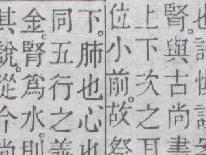 腎。與古尚書
上下次之耳
位小前。故祭
下。肺也心也
同五行之義
金。腎爲水。則
其說。從今尚